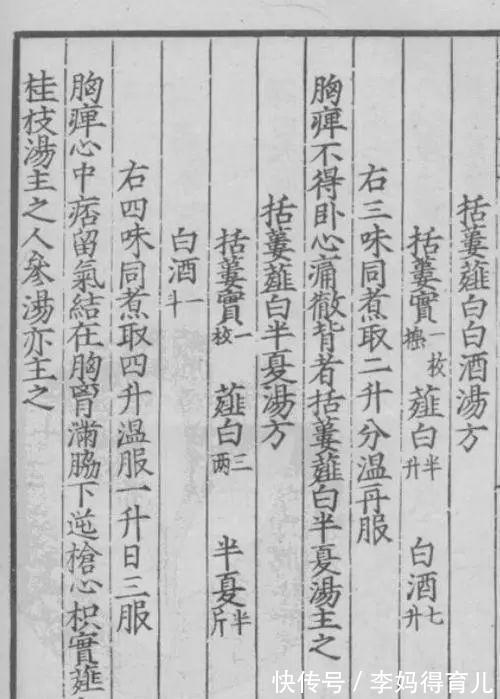 括蔞薤白白酒湯方
括蔞實一枚擣 薤白半升 白酒七升
右三味同煮取二升分温再服
胸痺不得卧心痛徹背者括蔞薤白半夏湯主之
括蔞薤白半夏湯方
括蔞實一枚 薤白三两 半夏半斤
白酒一斗
右四味同煮取四升温服一升日三服
胸痺心中痞留氣結在胸胷滿脇下逆搶心枳實薤
桂枝湯主之人參湯亦主之
快传号/李妈得育儿